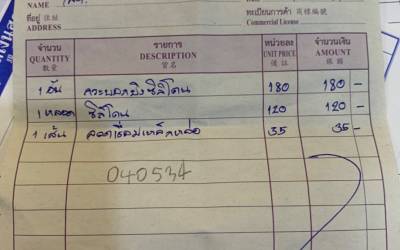 NAME
ที่อยู่ 住址
ADDRESS
ทะเบียนการค้า 商標編號
Commercial License
จำนวน รายการ หน่วยละ จำนวนเงิน
QUANTITY DESCRIPTION UNIT PRICE AMOUNT
數量 貨名 價銀
1 อัน กระบอกยิงซิลิโคน 180 180 -
1 หลอด ซิลิโคน 120 120 -
1 เส้น ลวดเชื่อมเหล็กหล่อ 35 35 -
040534